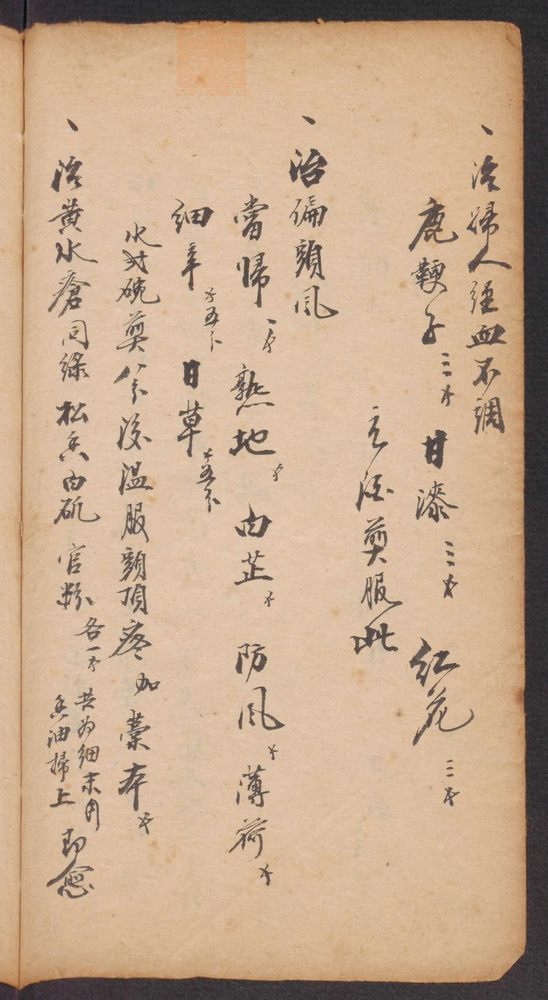 、治婦人經血不調
鹿鞭子三才 甘漆三才 紅花三才
元酒煎服
、治偏頭風
當帰一才 熟地才 白芷才 防風才 薄荷才
細辛才五卜 甘草才五卜
水式碗煎八分後溫服頭頂疼加藁本才
、治黃水瘡同綠松香白矾官粉各一才共為細末用
香油掃上即愈